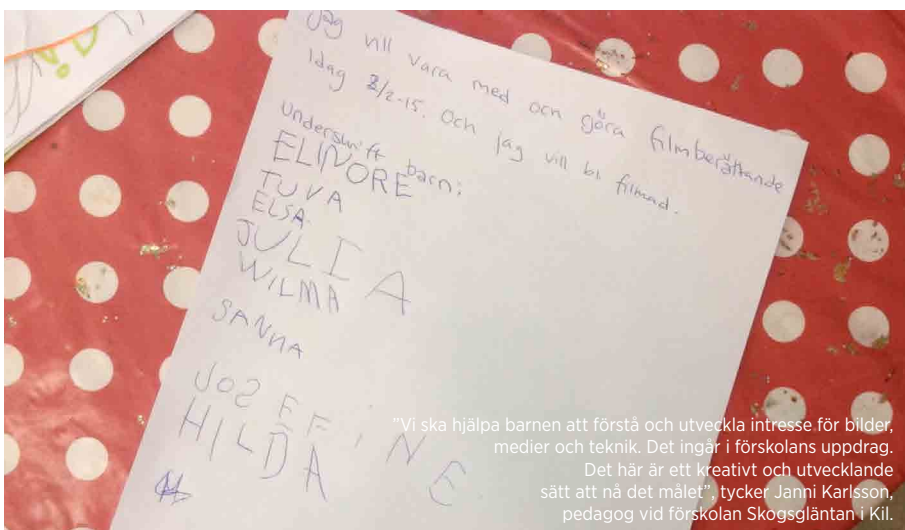 jag vill vara med och göra filmberättande
idag 2/2-15. Och jag vill bli filmad.
Underskrift barn:
ELINORE
TUVA
ELSA
JULIA
WILMA
SANNA
JOSEFiNE
HILDA
"Vi ska hjälpa barnen att förstå och utveckla intresse för bilder,
medier och teknik. Det ingår i förskolans uppdrag.
Det här är ett kreativt och utvecklande
sätt att nå det målet", tycker Janni Karlsson,
pedagog vid förskolan Skogsgläntan i Kil.